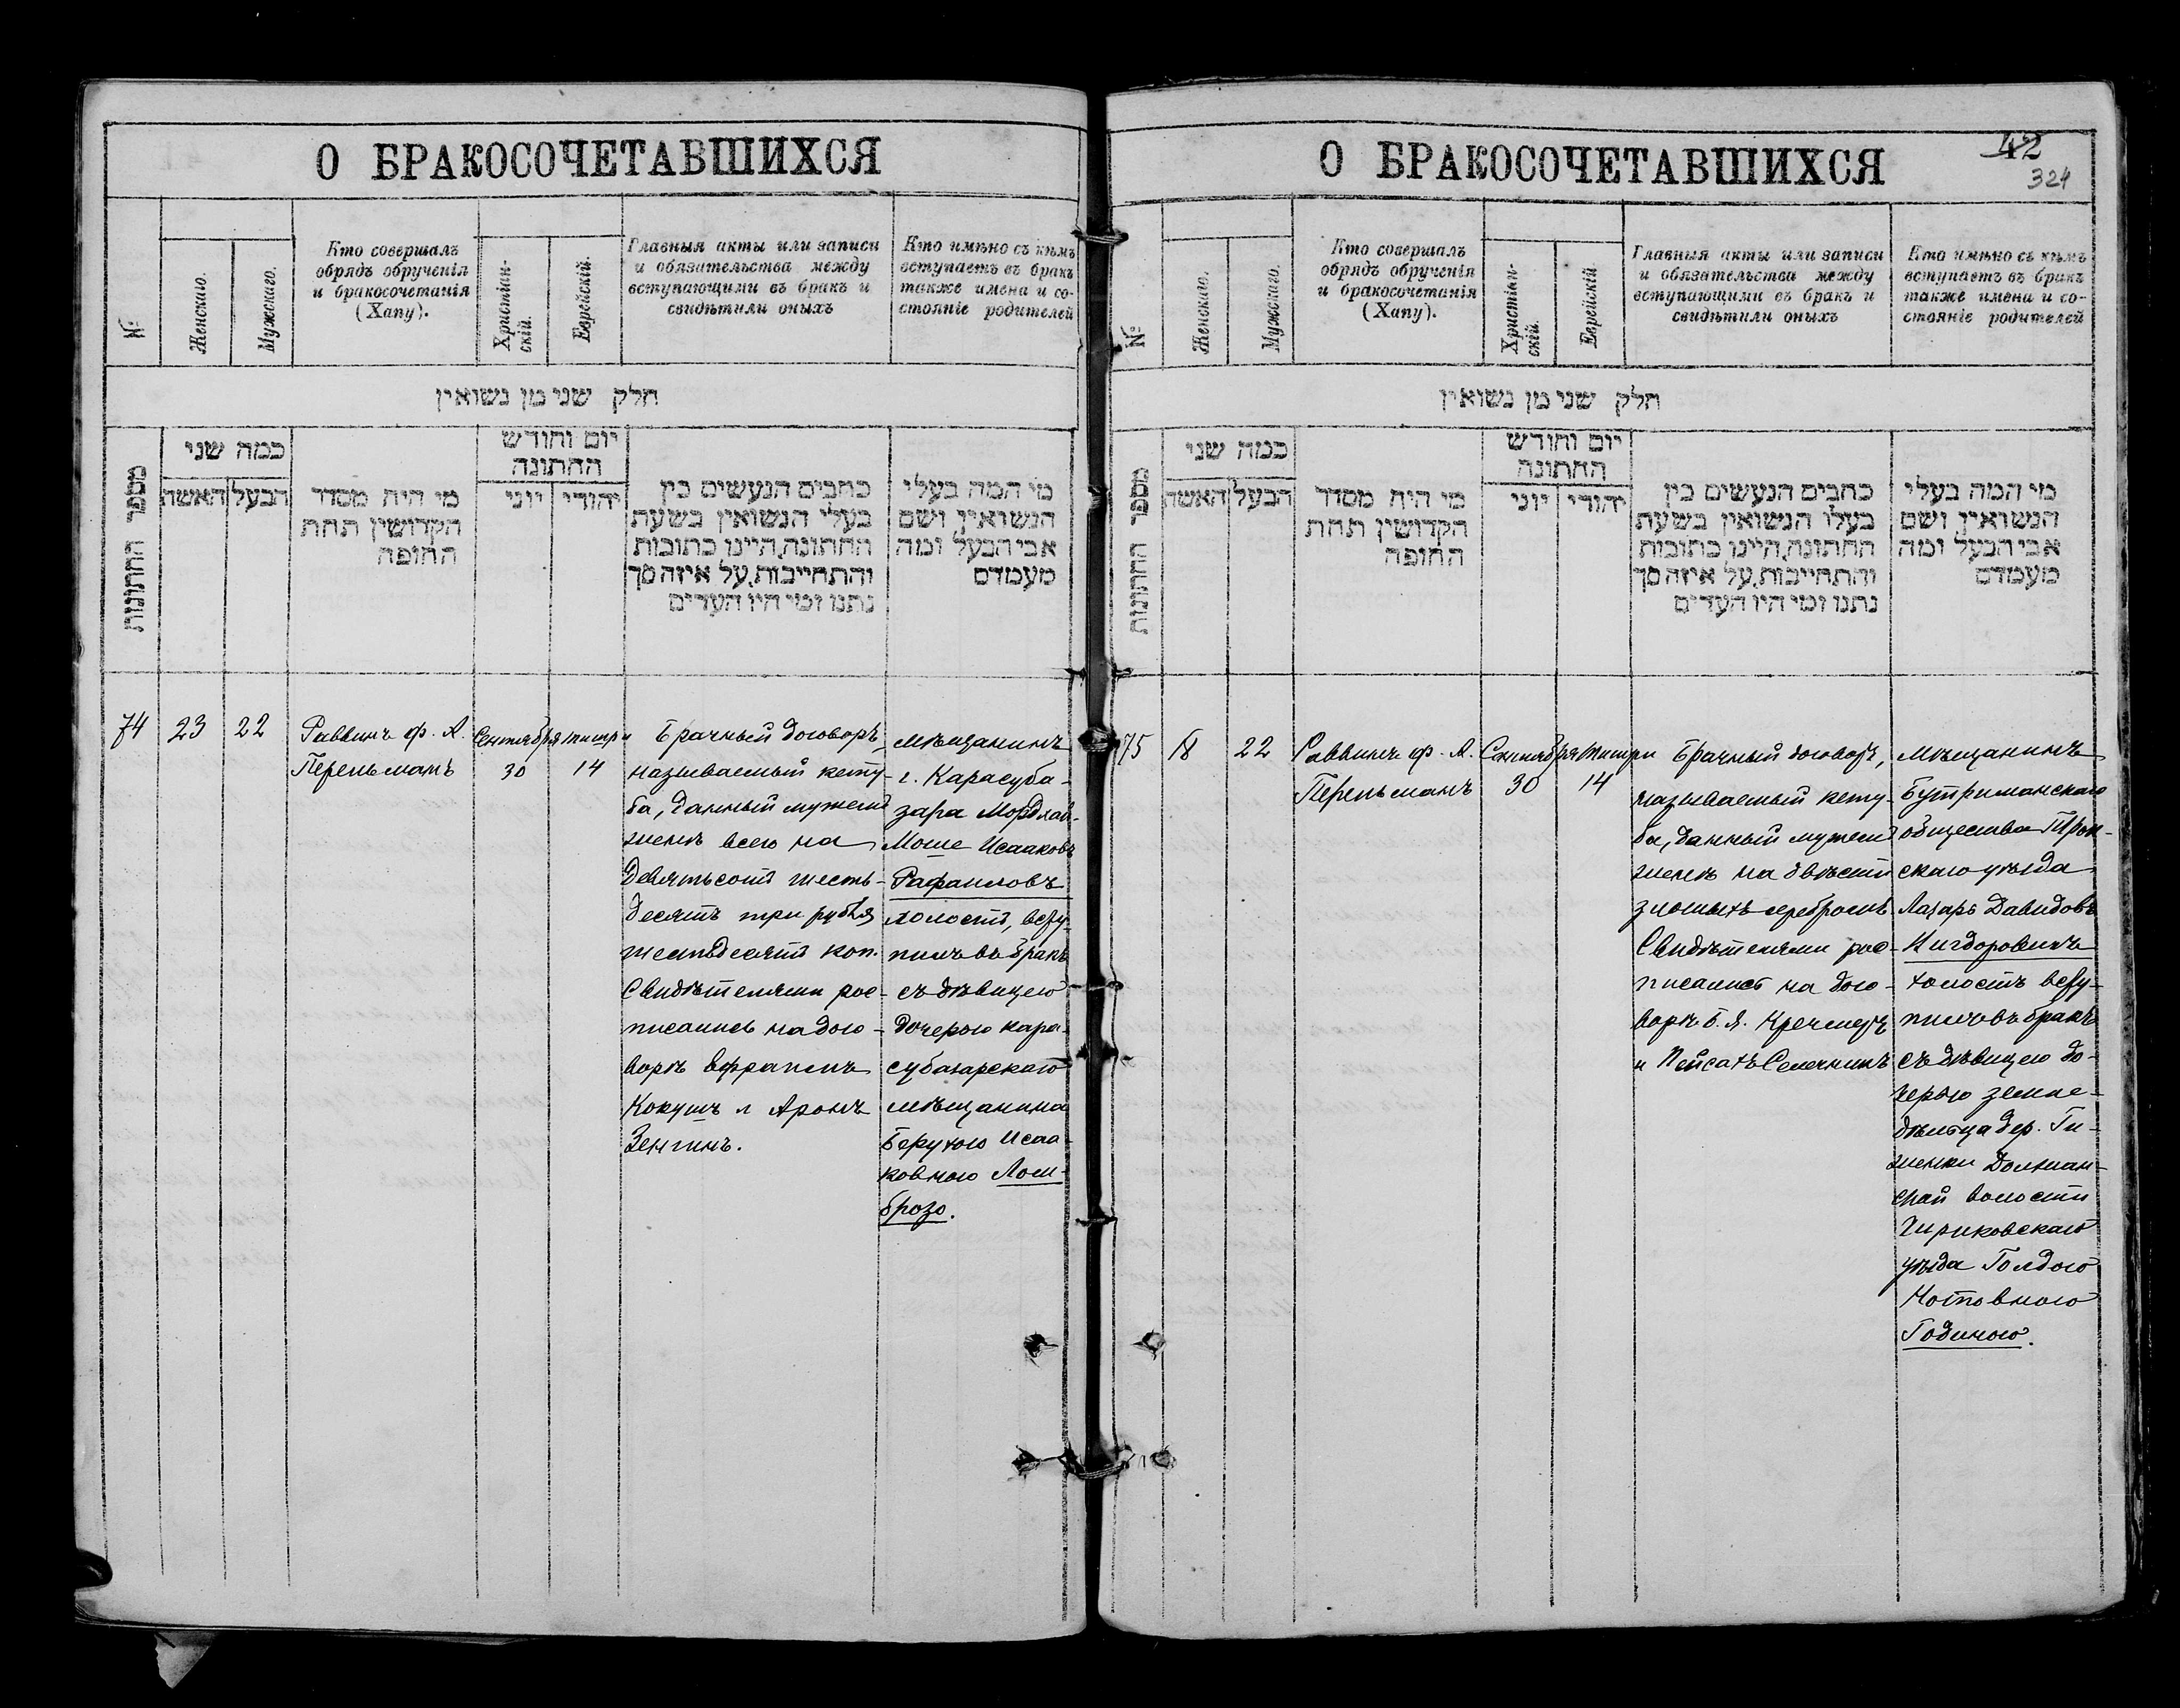 О БРАКОСОЧЕТАВШИХСЯ
№
Женскаго.
Мужскаго.
Кто совершалъ
обрядъ обрученія
и бракосочетанія
(Хапу).
Христіан-
скій.
Еврейскій.
Главныя акты или записи
и обязательства между
вступающими въ бракъ и
свидѣтили оныхъ
Кто имѣно съ кѣмъ
вступаетъ въ бракъ
также имена и со-
стояніе родителей
חלק שני מן נשואין
מספר החתונות
כמה שני
האשה
הבעל
מי היה מסדר
הקדושין תחת
החופה
יום וחודש
החתונה
יוני
יהודי
כתבים הנעשים בין
בעלי הנשואין בשעת
החתונה, היינו כתובות
והתחייבות, על איזה סך
נתנו ומי היו העדים
מי המה בעלי
הנשואין ושם
אבי הבעל ומה
מעמדם
74
23
22
Раввинъ Ф. А.
Перельманъ
Сентября
30
тишри
14
Брачный договоръ,
называемый кету-
ба, данный мужемъ
женѣ всего на
девятьсотъ шесть-
десятъ три рубля
шестьдесятъ коп.
Свидѣтелями рос-
писались на дого-
ворѣ Ефраимъ
Кокушъ и Аронъ
Зенгинъ.
Мѣщанинъ
г. Карасуба-
зара Мордхай-
Моше Исааковъ
Рафаиловъ
холостъ, всту-
пилъ въ бракъ
съ дѣвицею
дочерью кара-
субазарскаго
мѣщанина
Берухою Исаа-
ковною Лом-
брозо.
О БРАКОСОЧЕТАВШИХСЯ
42
324
№
Женскаго.
Мужскаго.
Кто совершалъ
обрядъ обрученія
и бракосочетанія
(Хапу).
Христіан-
скій.
Еврейскій
Главныя акты или записи
и обязательства между
вступающими въ бракъ и
свидѣтили оныхъ
Кто имѣно съ кѣмъ
вступаетъ въ бракъ
также имена и со-
стояніе родителей
חלק שני מן נשואין
מספר החתונות
כמה שני
האשה
הבעל
מי היה מסדר
הקדושין תחת
החופה
יום וחודש
החתונה
יוני
יהודי
כתבים הנעשים בין
בעלי הנשואין בשעת
החתונה, היינו כתובות
והתחייבות, על איזה סך
נתנו ומי היו העדים
מי המה בעלי
הנשואין ושם
אבי הבעל ומה
מעמדם
75
18
22
Раввинъ Ф. А.
Перельманъ
Сентября
30
Тишри
14
Брачный договоръ,
называемый кету-
ба, данный мужемъ
женѣ на двѣсти
злотыхъ серебромъ
Свидѣтелями рос-
писались на дого-
ворѣ Б. Я. Кремеръ
и Пейсахъ
Мѣщанинъ
Бутриманскаго
общества Трок-
скаго уѣзда
Лазарь Давидовъ
холостъ всту-
пилъ въ бракъ
съ дѣвицею до-
черью земле-
дѣльца дер. Ги-
женки Должан-
ской волости
Чириковскаго
уѣзда Голдою
Нотовною
Годиною.